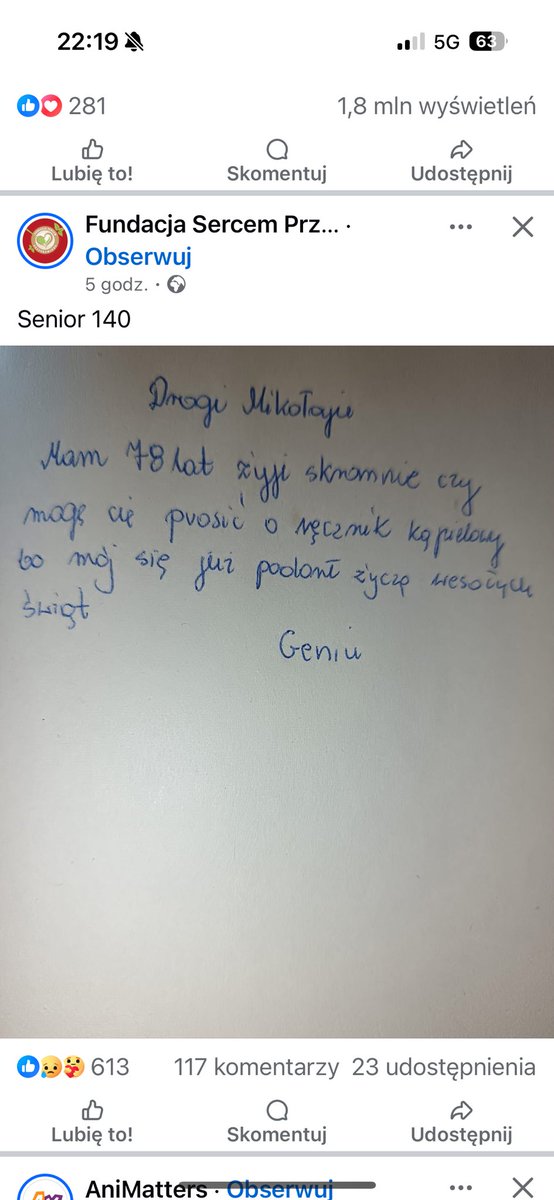 22:19 5G 63
281 1,8 mln wyświetleń
Lubię to! Skomentuj Udostępnij
Fundacja Sercem Prz... ·
Obserwuj
5 godz. ·
Senior 140
Drogi Mikołaju
Mam 78 lat żyji skromnie czy
mogę cię prosić o ręcznik kąpielowy
bo mój się już podarł życzę wesołych
świąt
Geniu
613 117 komentarzy 23 udostępnienia
Lubię to! Skomentuj Udostępnij
AniMatters · Obserwuj